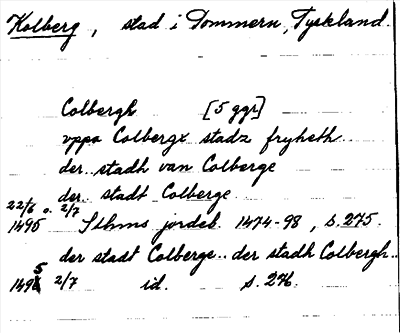 Kolberg, stad i Pommern, Tyskland.
Colbergh [5 ggr]
vppa Colbergx stadz fryheth..
der..stadh van Colberge
der.. stadt Colberge
22/6 o. 2/7
1495 Sthms jordeb. 1474-98, s.275.
der stadt Colberge.. der stadh Colbergh..
1495 2/7 id. s. 276.